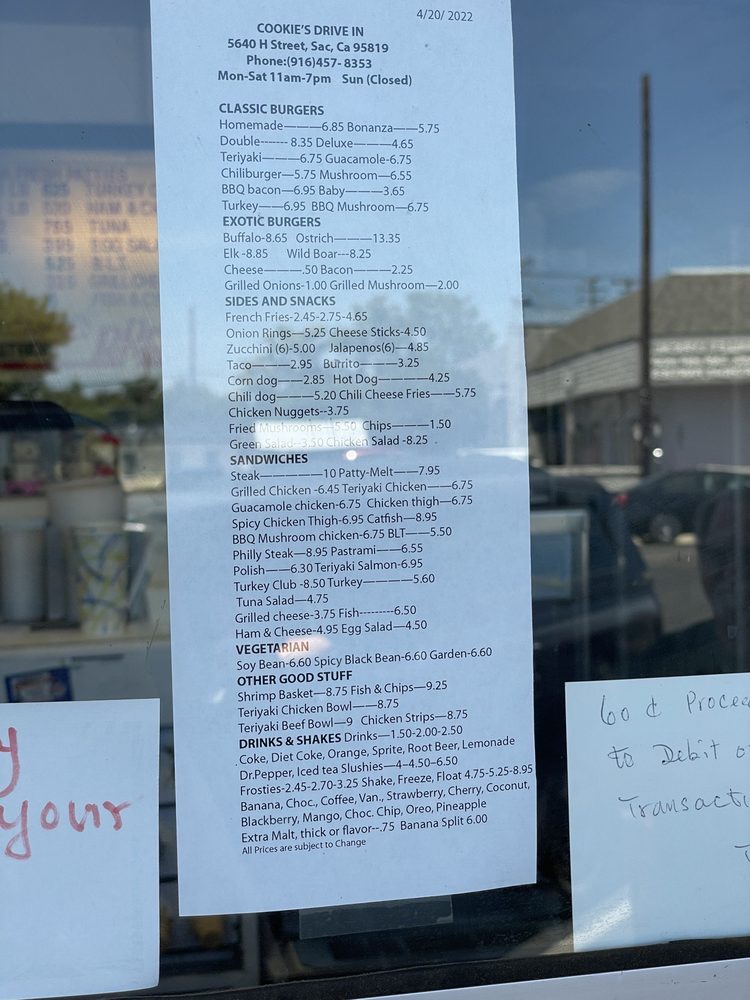 4/20/ 2022
COOKIE'S DRIVE IN
5640 H Street, Sac, Ca 95819
Phone:(916)457- 8353
Mon-Sat 11am-7pm Sun (Closed)
CLASSIC BURGERS
Homemade———6.85 Bonanza——5.75
Double------- 8.35 Deluxe———4.65
Teriyaki———6.75 Guacamole-6.75
Chiliburger—5.75 Mushroom—6.55
BBQ bacon—6.95 Baby———3.65
Turkey——6.95 BBQ Mushroom—6.75
EXOTIC BURGERS
Buffalo-8.65 Ostrich———13.35
Elk -8.85 Wild Boar---8.25
Cheese———.50 Bacon——2.25
Grilled Onions-1.00 Grilled Mushroom—2.00
SIDES AND SNACKS
French Fries-2.45-2.75-4.65
Onion Rings—5.25 Cheese Sticks-4.50
Zucchini (6)-5.00 Jalapenos(6)—4.85
Taco———2.95 Burrito———3.25
Corn dog——2.85 Hot Dog————4.25
Chili dog———5.20 Chili Cheese Fries——5.75
Chicken Nuggets--3.75
Fried Mushrooms—5.50 Chips———1.50
Green Salad--3.50 Chicken Salad -8.25
SANDWICHES
Steak——————10 Patty-Melt——7.95
Grilled Chicken -6.45 Teriyaki Chicken——6.75
Guacamole chicken-6.75 Chicken thigh—6.75
Spicy Chicken Thigh-6.95 Catfish—8.95
BBQ Mushroom chicken-6.75 BLT——5.50
Philly Steak—8.95 Pastrami——6.55
Polish——6.30 Teriyaki Salmon-6.95
Turkey Club -8.50 Turkey————5.60
Tuna Salad—4.75
Grilled cheese-3.75 Fish---------6.50
Ham & Cheese-4.95 Egg Salad—4.50
VEGETARIAN
Soy Bean-6.60 Spicy Black Bean-6.60 Garden-6.60
OTHER GOOD STUFF
Shrimp Basket—8.75 Fish & Chips—9.25
Teriyaki Chicken Bowl——8.75
Teriyaki Beef Bowl—9 Chicken Strips—8.75
DRINKS & SHAKES Drinks—1.50-2.00-2.50
Coke, Diet Coke, Orange, Sprite, Root Beer, Lemonade
Dr.Pepper, Iced tea Slushies—4–4.50–6.50
Frosties-2.45-2.70-3.25 Shake, Freeze, Float 4.75-5.25-8.95
Banana, Choc., Coffee, Van., Strawberry, Cherry, Coconut,
Blackberry, Mango, Choc. Chip, Oreo, Pineapple
Extra Malt, thick or flavor--.75 Banana Split 6.00
All Prices are subject to Change
your
60 ¢ Procee
to Debit o
Transacti